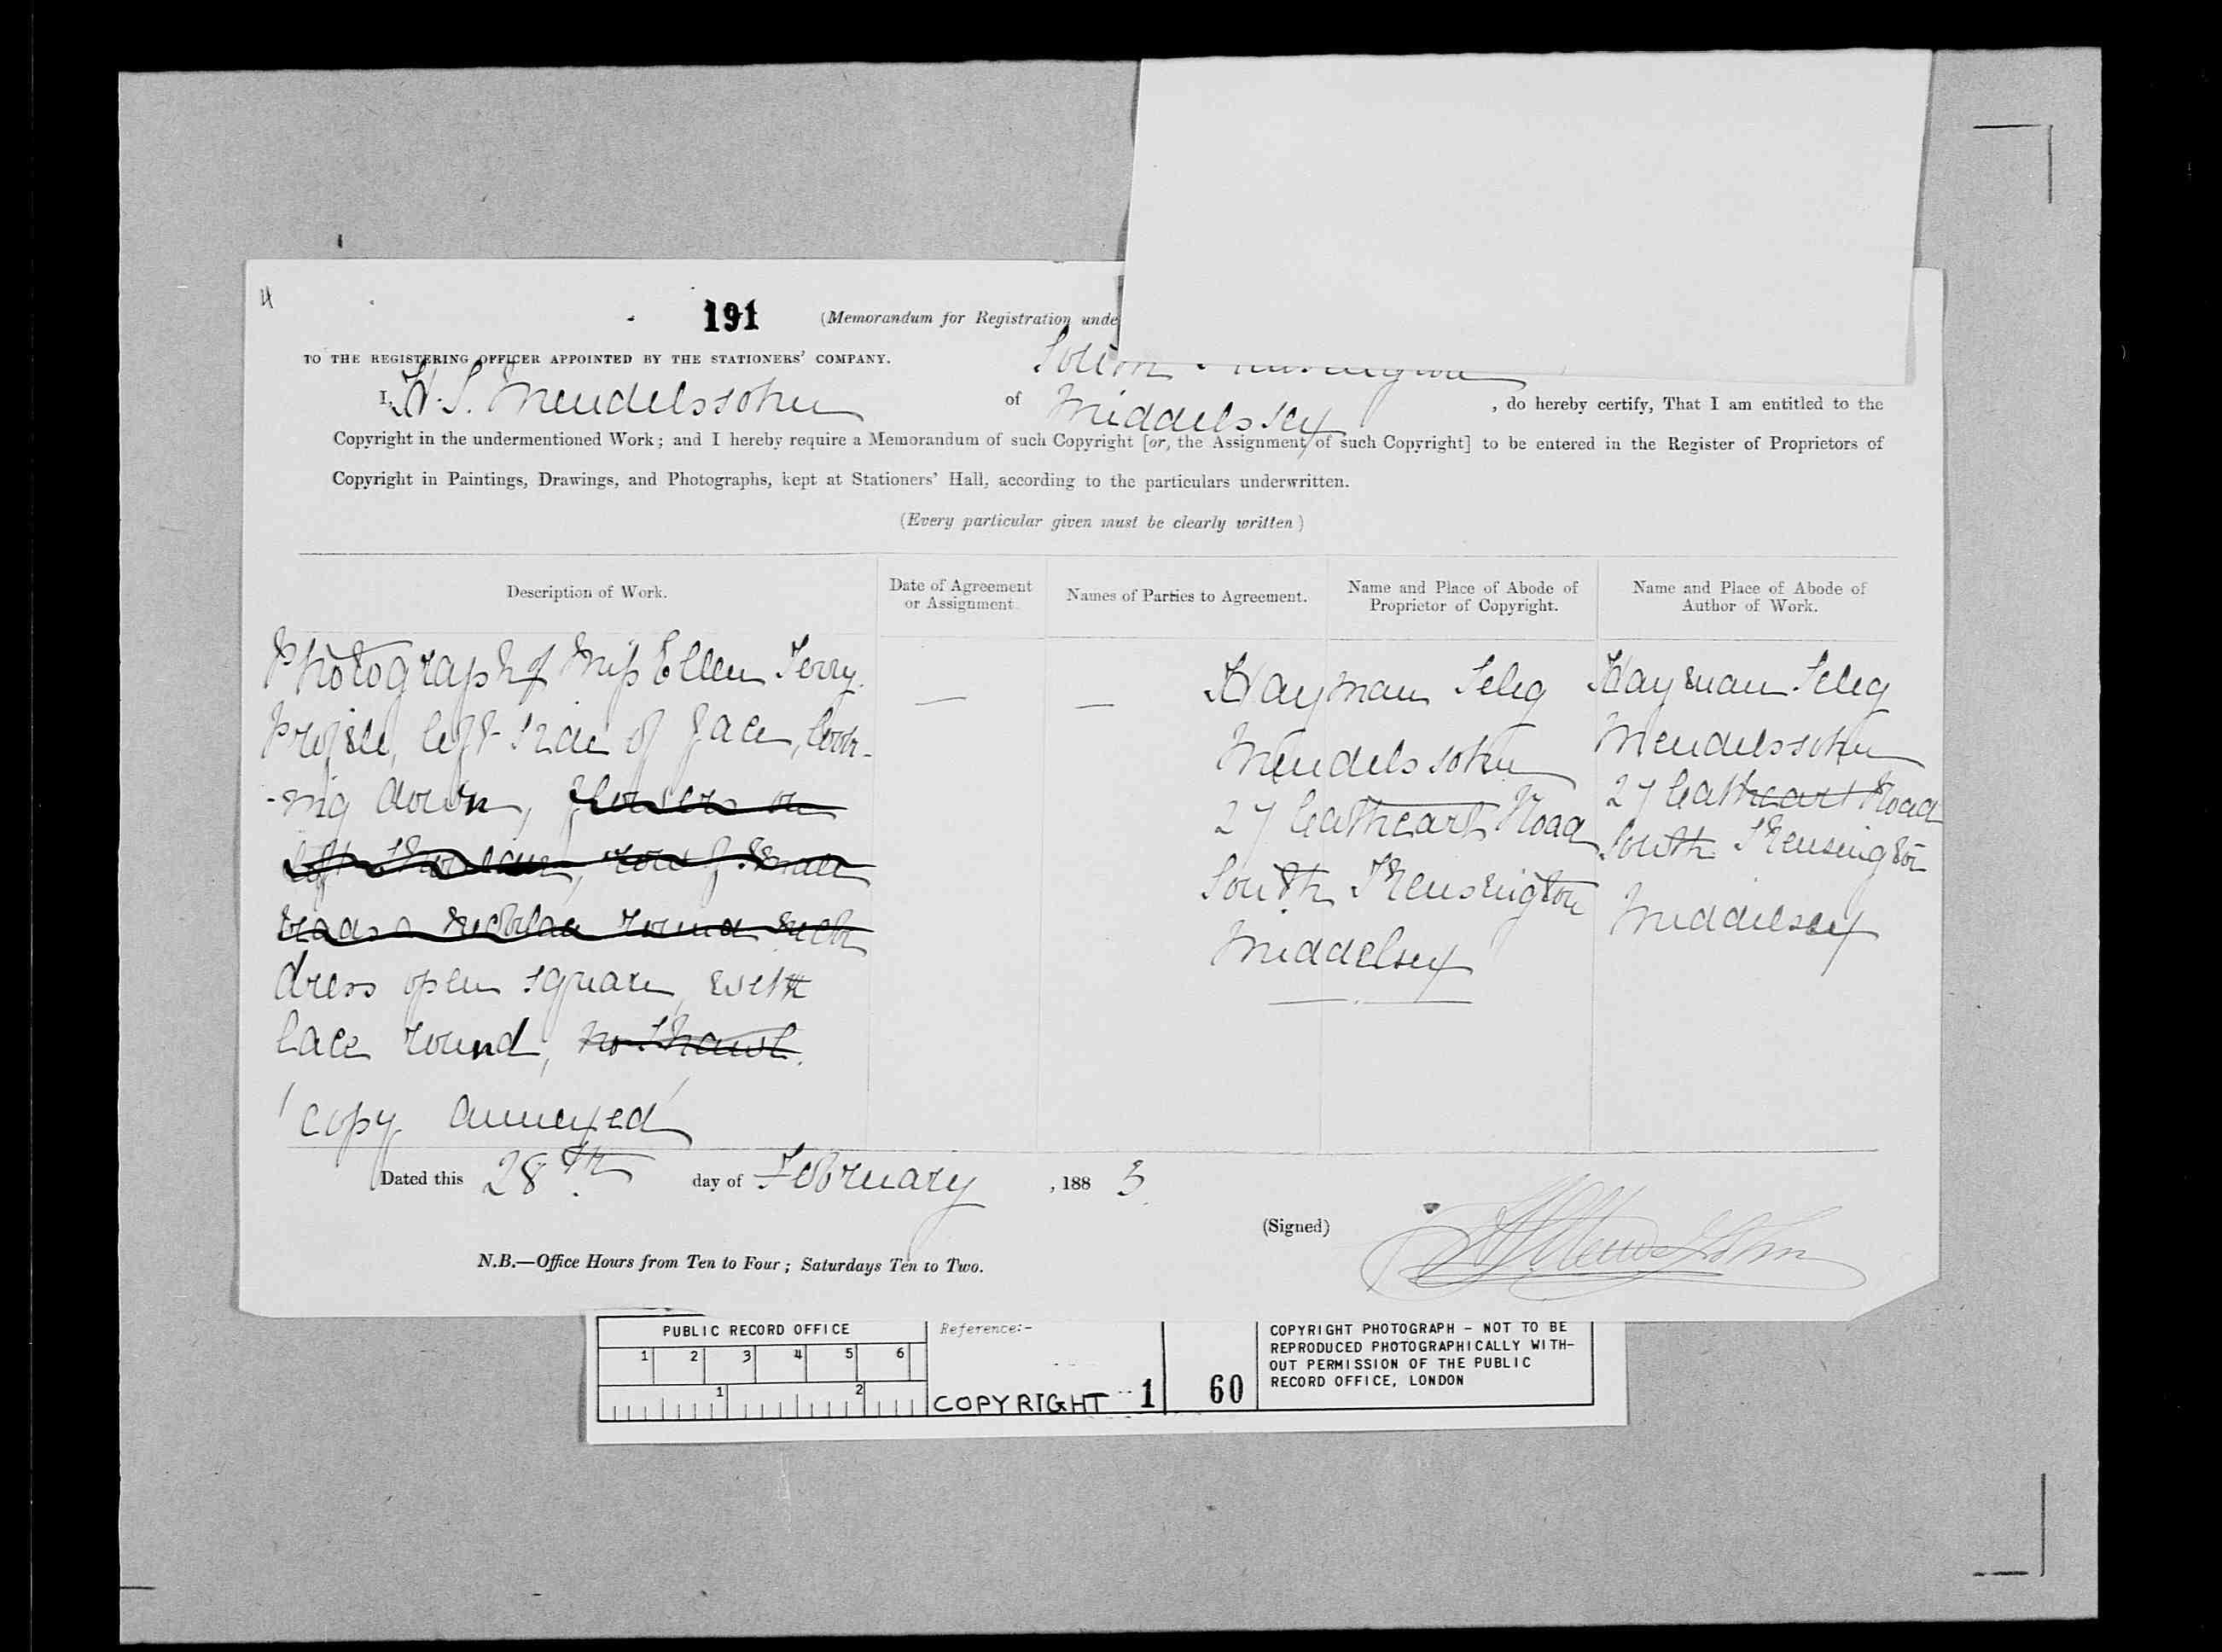 191 (Memorandum for Registration unde
TO THE REGISTERING OFFICER APPOINTED BY THE STATIONERS' COMPANY.
South Kensington
I, H. S. Mendelssohn of Middelssex, do hereby certify, That I am entitled to the
Copyright in the undermentioned Work; and I hereby require a Memorandum of such Copyright [or, the Assignment of such Copyright] to be entered in the Register of Proprietors of
Copyright in Paintings, Drawings, and Photographs, kept at Stationers' Hall, according to the particulars underwritten.
(Every particular given must be clearly written)
Description of Work.
Date of Agreement
or Assignment.
Names of Parties to Agreement.
Name and Place of Abode of
Proprietor of Copyright.
Name and Place of Abode of
Author of Work.
Photograph of Miss Ellen Terry.
Profile, left side of face, look-
-ing down, flowers on
left shoulder, row of small
beads a necklace round neck
dress open square, with
lace round, no shawl.
'copy annexed'
—
—
Hayman Seleg
Mendelssohn
27 Cathcart Road
South Kensington
Middelsex
Hayman Seleg
Mendelssohn
27 Cathcart Road
South Kensington
Middelsex
Dated this 28th day of February, 1883
(Signed) H S Mendelssohn
N.B.—Office Hours from Ten to Four; Saturdays Ten to Two.
PUBLIC RECORD OFFICE
1 2 3 4 5 6
1 2
Reference:-
COPYRIGHT 1 60
COPYRIGHT PHOTOGRAPH - NOT TO BE
REPRODUCED PHOTOGRAPHICALLY WITH-
OUT PERMISSION OF THE PUBLIC
RECORD OFFICE, LONDON